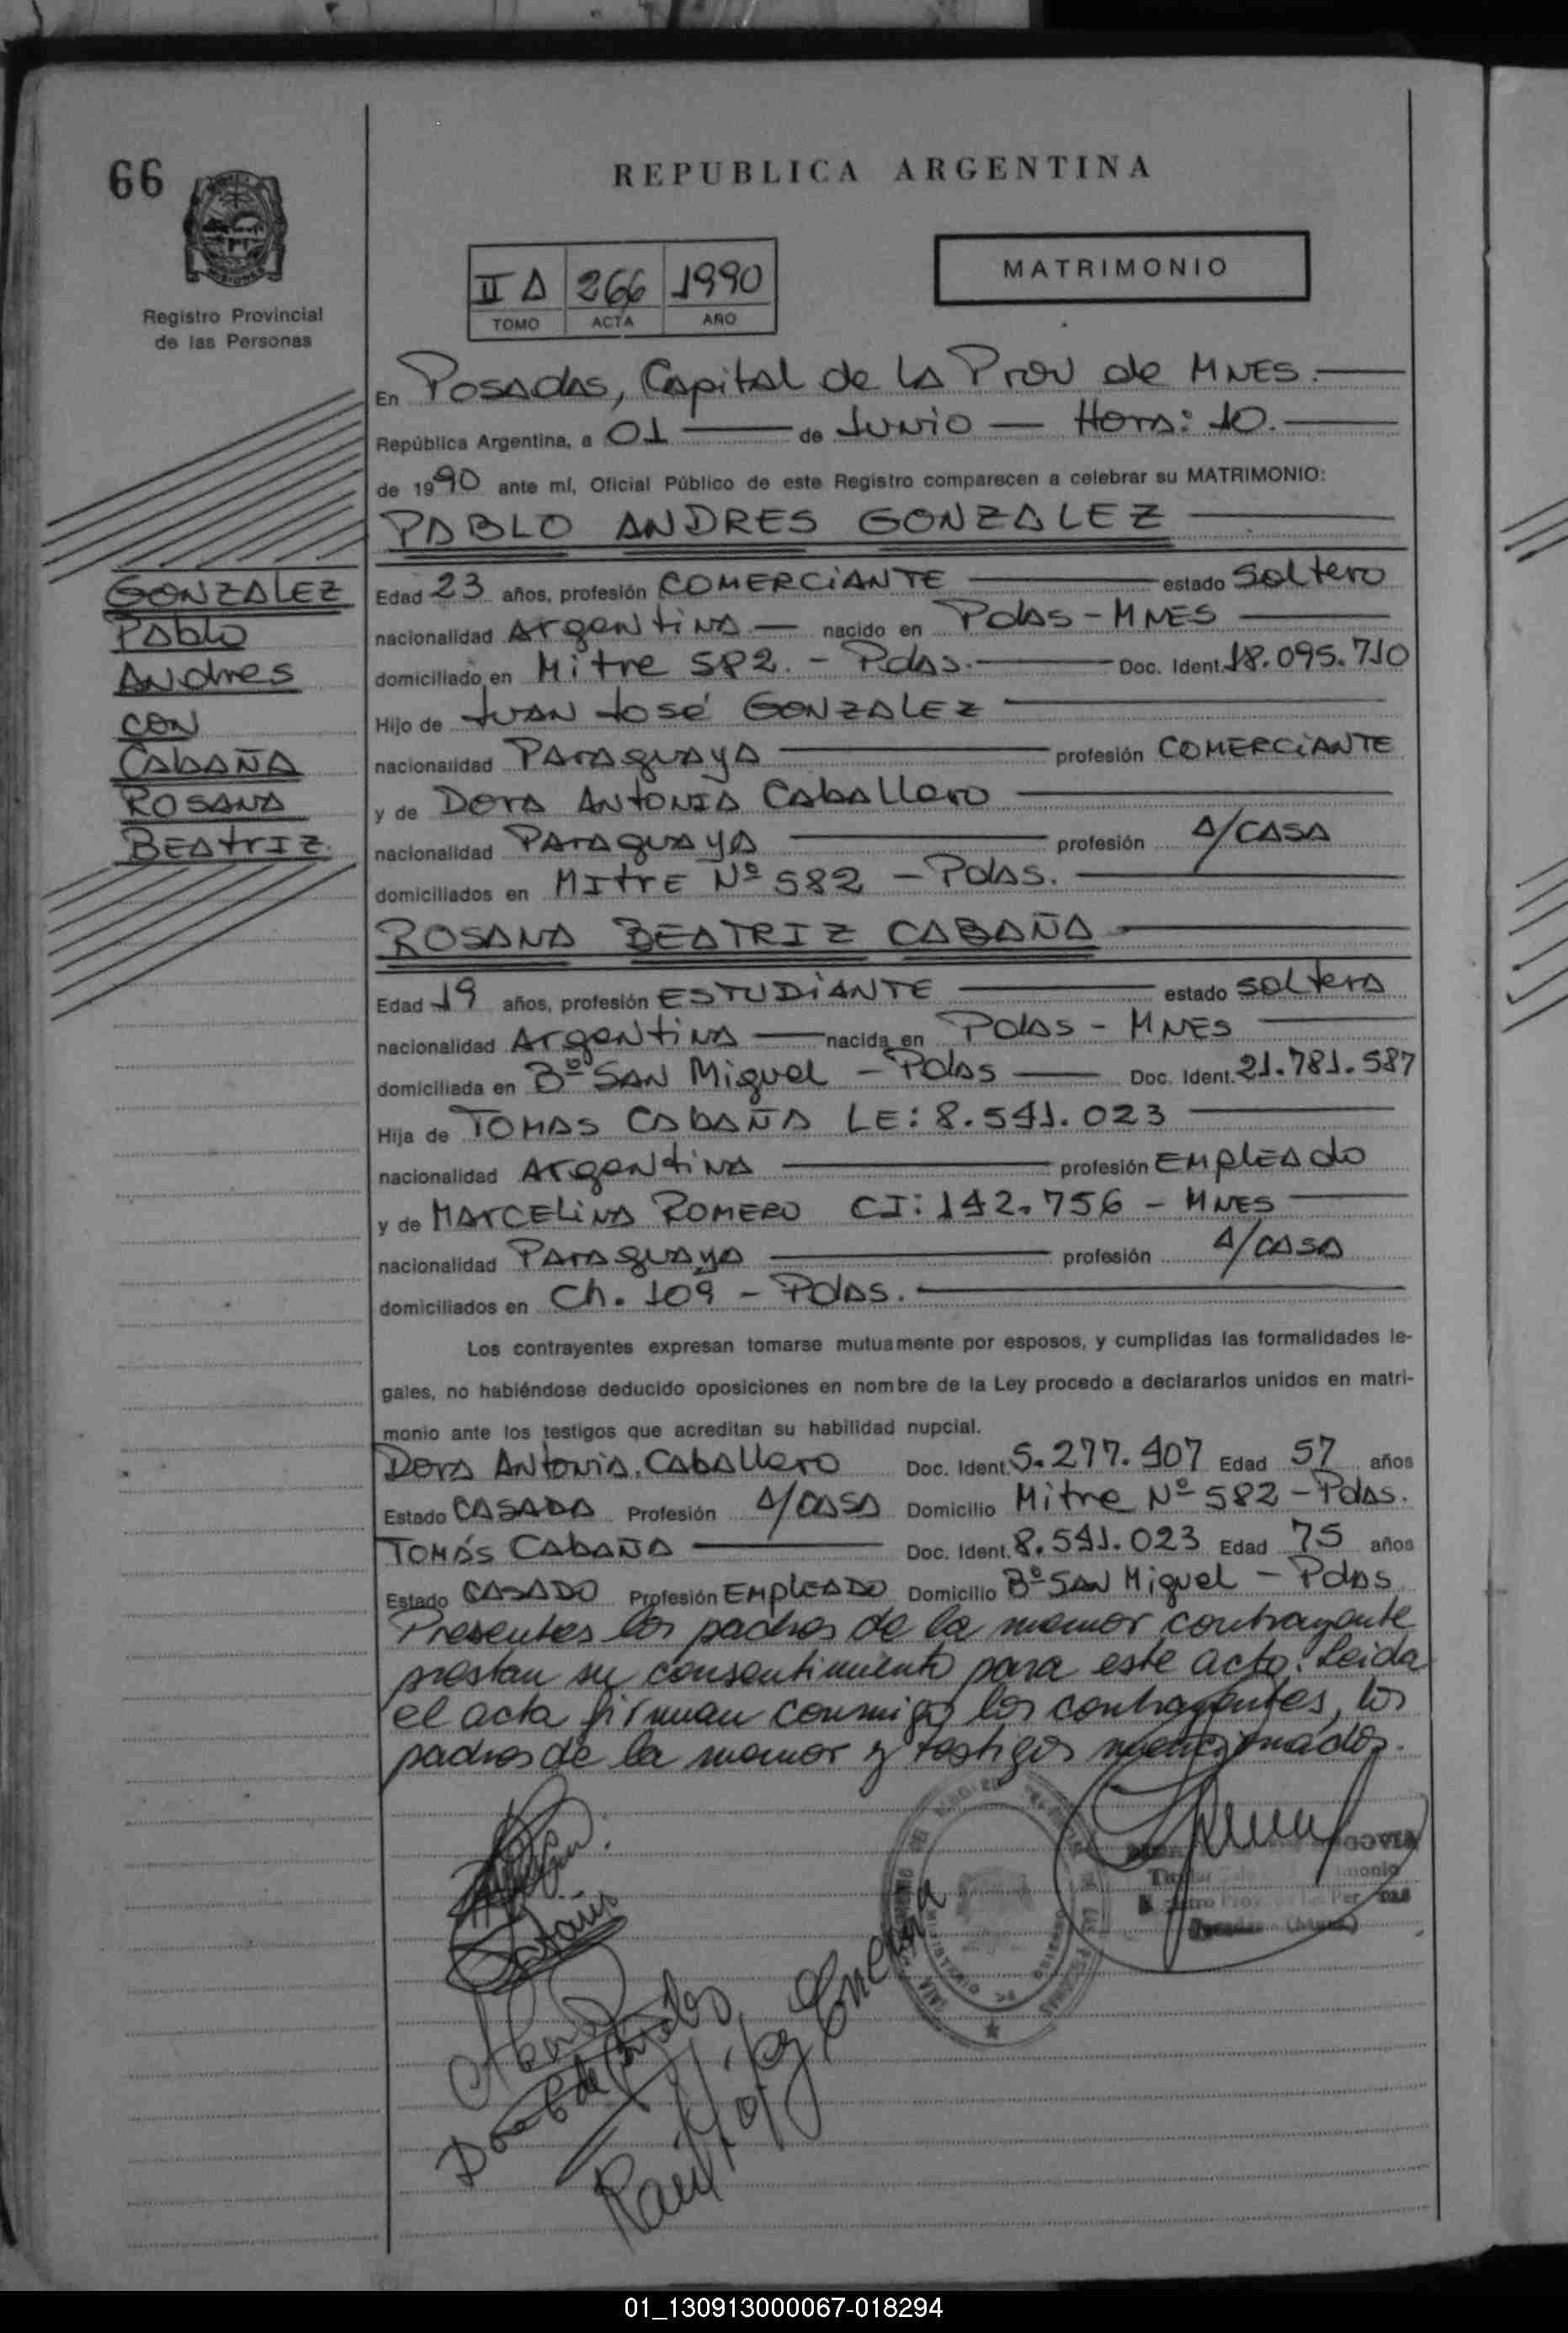 66
REPUBLICA ARGENTINA
MATRIMONIO
II A 266 1990
TOMO ACTA AÑO
Registro Provincial
de las Personas
En Posadas, Capital de la Prov de MNES.
República Argentina, a 01 de Junio Hora: 10.
de 1990 ante mí, Oficial Público de este Registro comparecen a celebrar su MATRIMONIO:
PABLO ANDRES GONZALEZ
GONZALEZ
Pablo
Andres
CON
CABAÑA
ROSANA
BEAtriz.
Edad 23 años, profesión COMERCiANTE estado Soltero
nacionalidad Argentina nacido en Pdas - MNES
domiciliado en Mitre 582. - Pdas. Doc. Ident. 18.095.710
Hijo de Juan José GONZALEZ
nacionalidad PArAguAyA profesión COMERCiANTE
y de Dora Antonia Caballero
nacionalidad PArAguAyA profesión A/CASA
domiciliados en MItrE Nº 582 - Pdas.
ROSANA BEATRIZ CABAÑA
Edad 19 años, profesión ESTUDiANTE estado Soltera
nacionalidad Argentina nacida en Pdas - MNES
domiciliada en Bº SAN Miguel - Pdas Doc. Ident. 21.781.587
Hija de TOMAS CabaÑA LE: 8.541.023
nacionalidad Argentina profesión EMpleado
y de MArCELiNA ROMERO CI: 142.756 - MNES
nacionalidad PArAguAya profesión A/CASA
domiciliados en Ch. 109 - Pdas.
Los contrayentes expresan tomarse mutuamente por esposos, y cumplidas las formalidades le-
gales, no habiéndose deducido oposiciones en nombre de la Ley procedo a declararlos unidos en matri-
monio ante los testigos que acreditan su habilidad nupcial.
Dora Antonia Caballero Doc. Ident. 5.277.407 Edad 57 años
Estado CASADA Profesión A/CASA Domicilio Mitre Nº 582 - Pdas.
TOMÁS CabaÑA Doc. Ident. 8.541.023 Edad 75 años
Estado CASADO Profesión EMPLEADO Domicilio Bº SAN Miguel - Pdas
Presentes los padres de la menor contrayente
prestan su consentimiento para este acto. Leida
el acta firman conmigo los contrayentes, los
padres de la menor y testigos mencionados.
01_130913000067-018294